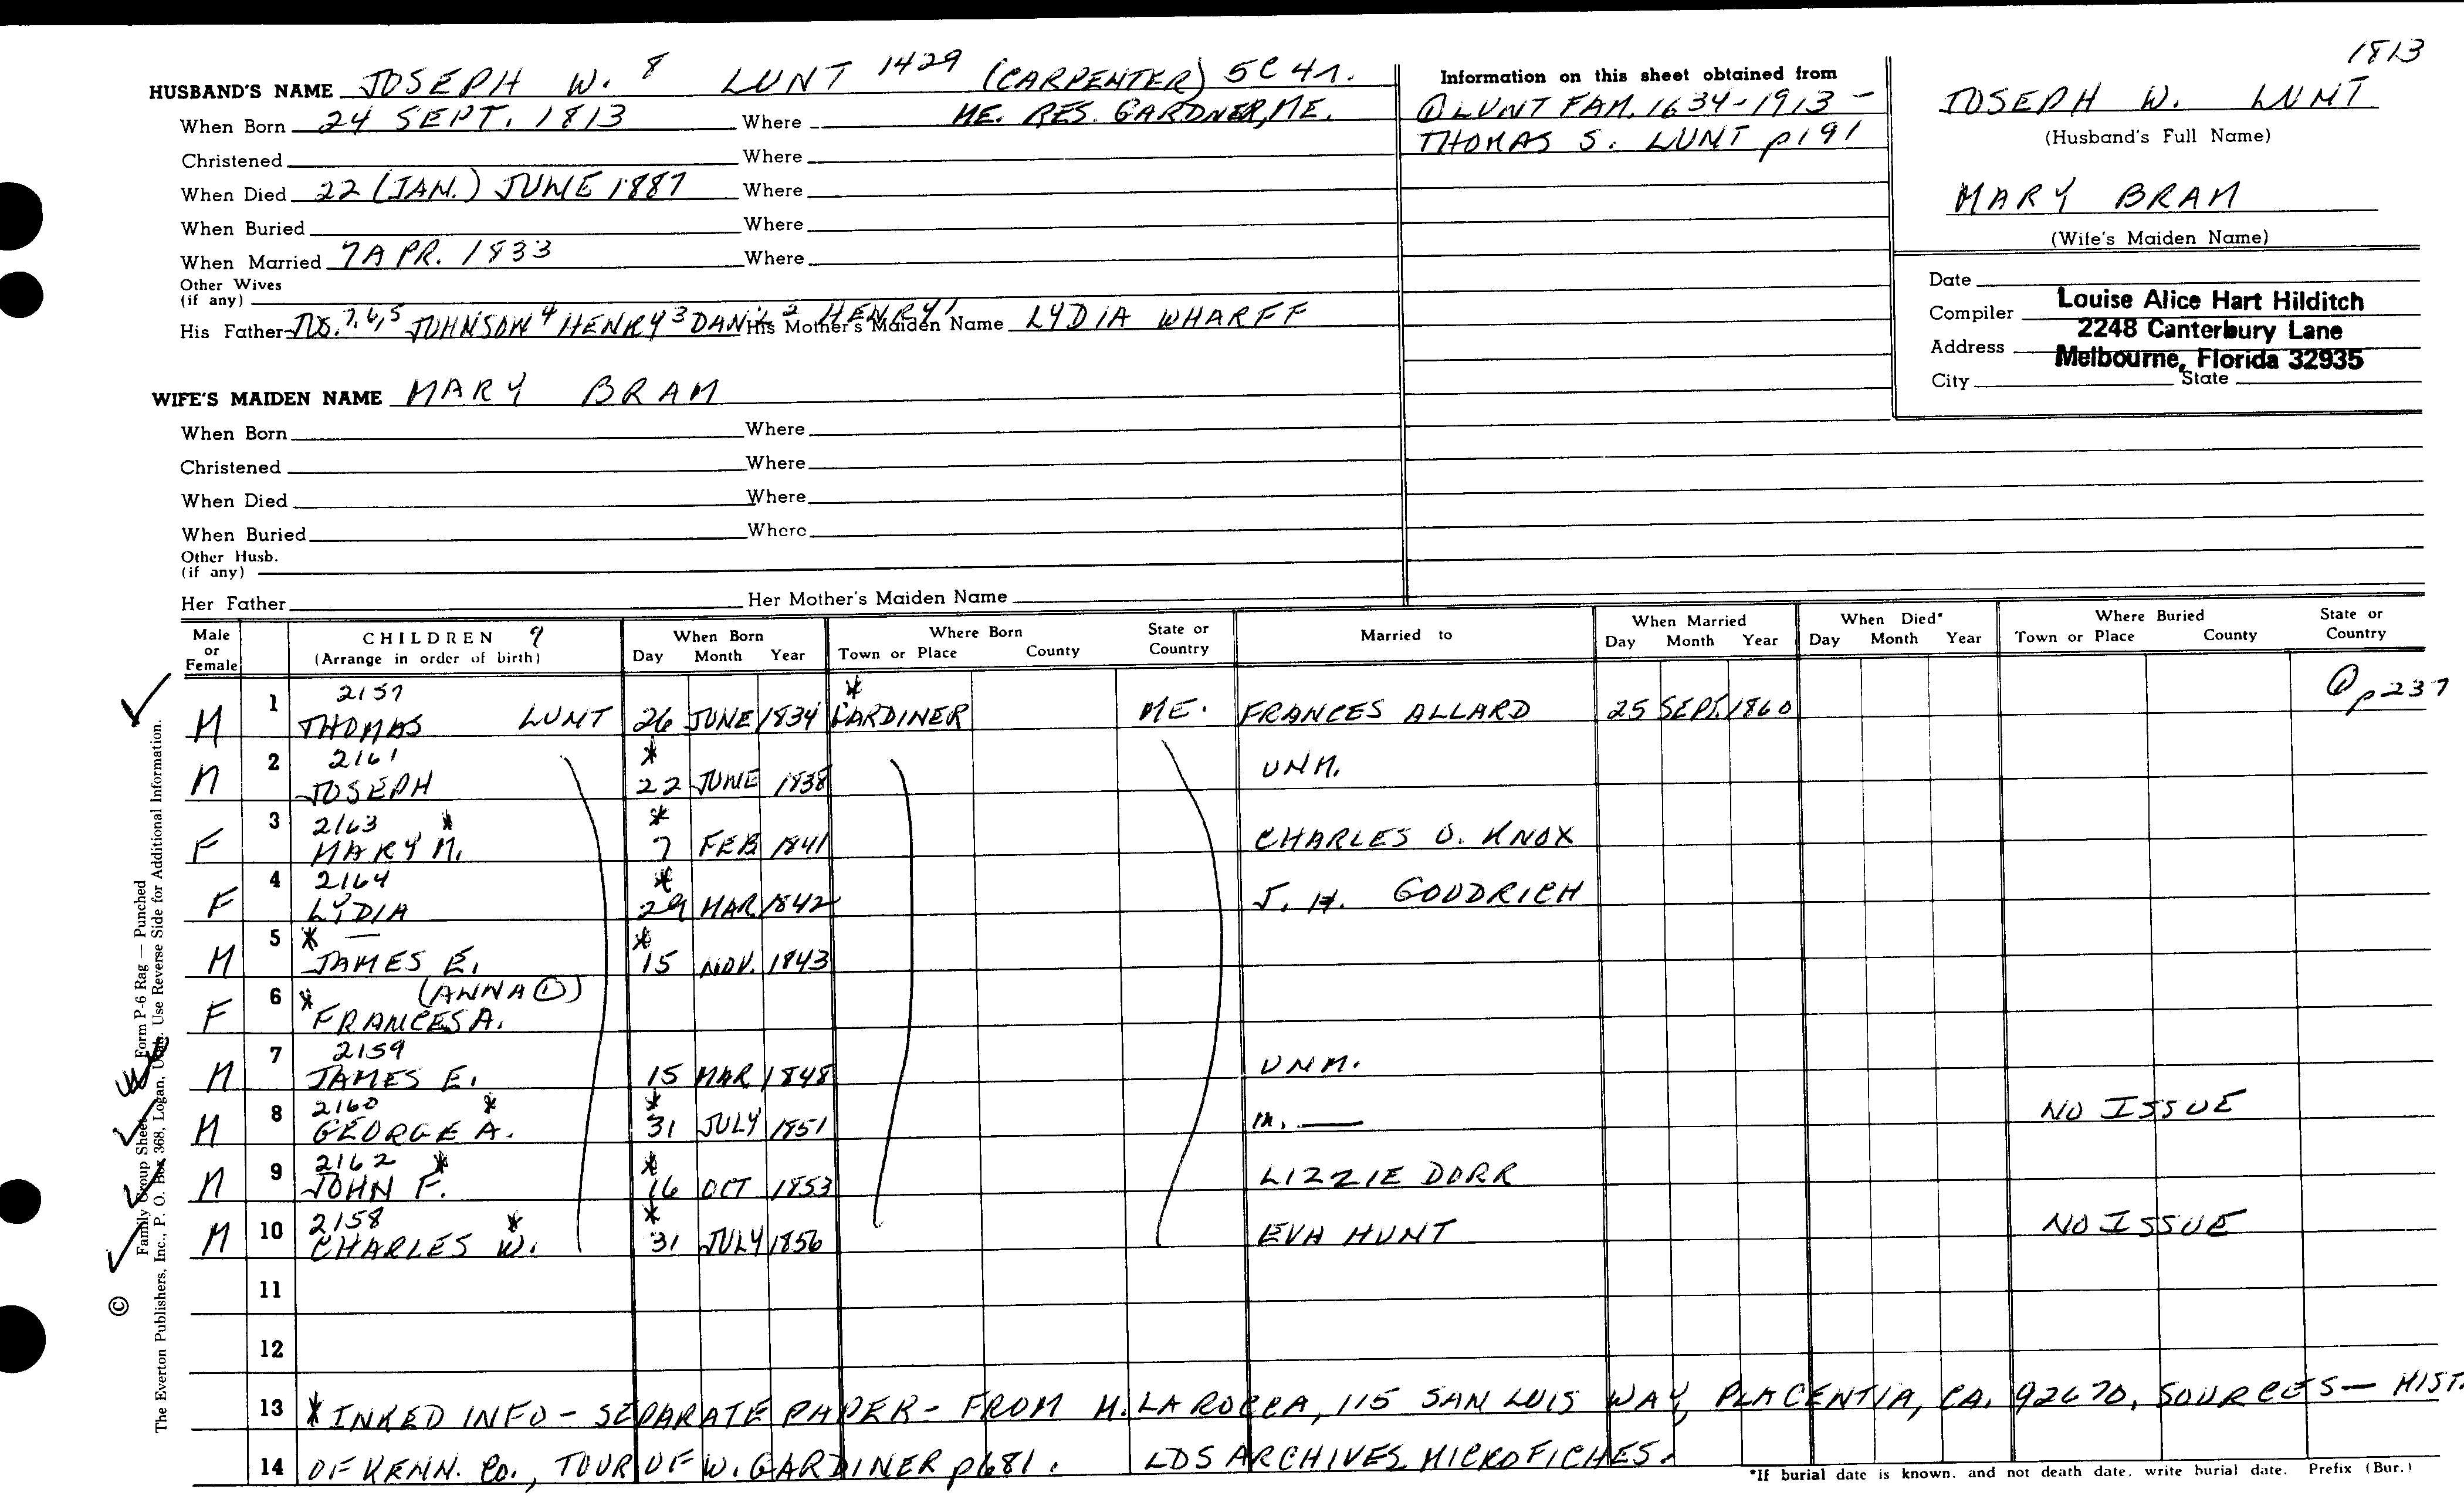 1813
HUSBAND'S NAME JOSEPH W. 8 LUNT 1429 (CARPENTER) 5C 4s.
When Born 24 SEPT. 1813 Where ME. RES. GARDNER, ME.
Christened Where
When Died 22 (JAN.) JUNE 1887 Where
When Buried Where
When Married 7 APR. 1833 Where
Other Wives
(if any)
His Father JOS. 7,6,5 JOHNSON 4 HENRY 3 DAN'L 2 HENRY 1 His Mother's Maiden Name LYDIA WHARFF
Information on this sheet obtained from
① LUNT FAM. 1634-1913 -
THOMAS S. LUNT p191
JOSEPH W. LUNT
(Husband's Full Name)
MARY BRAN
(Wife's Maiden Name)
Date
Compiler Louise Alice Hart Hilditch
Address 2248 Canterbury Lane
Melbourne, Florida 32935
City State
WIFE'S MAIDEN NAME MARY BRAN
When Born Where
Christened Where
When Died Where
When Buried Where
Other Husb.
(if any)
Her Father Her Mother's Maiden Name
Male or Female CHILDREN 9 (Arrange in order of birth) When Born Day Month Year Where Born Town or Place County State or Country Married to When Married Day Month Year When Died* Day Month Year Where Buried Town or Place County State or Country
M 1 2157 THOMAS LUNT 26 JUNE 1834 * GARDINER ME. FRANCES ALLARD 25 SEPT. 1860 ① p237
M 2 2161 JOSEPH * 22 JUNE 1838 UNM.
F 3 2163 * MARY M. * 7 FEB 1841 CHARLES O. KNOX
F 4 2164 LYDIA * 29 MAR 1842 J. H. GOODRICH
M 5 * — JAMES E. * 15 NOV. 1843
F 6 * (ANNA ①) FRANCES A.
M 7 2159 JAMES E. 15 MAR 1848 UNM.
M 8 2160 * GEORGE A. * 31 JULY 1851 m. — NO ISSUE
M 9 2162 * JOHN F. * 16 OCT 1853 LIZZIE DORR
M 10 2158 * CHARLES W. * 31 JULY 1856 EVA HUNT NO ISSUE
11
12
13 * INKED INFO - SEPARATE PAPER - FROM M. LA ROCCA, 115 SAN LUIS WAY, PLACENTIA, CA. 92670, SOURCES — HIST.
14 OF KENN. Co., TOUR OF W. GARDINER p681. LDS ARCHIVES MICROFICHES.
*If burial date is known, and not death date, write burial date. Prefix (Bur.)
© Family Group Sheet Form P-6 Rag — Punched
The Everton Publishers, Inc., P. O. Box 368, Logan, Utah. Use Reverse Side for Additional Information.